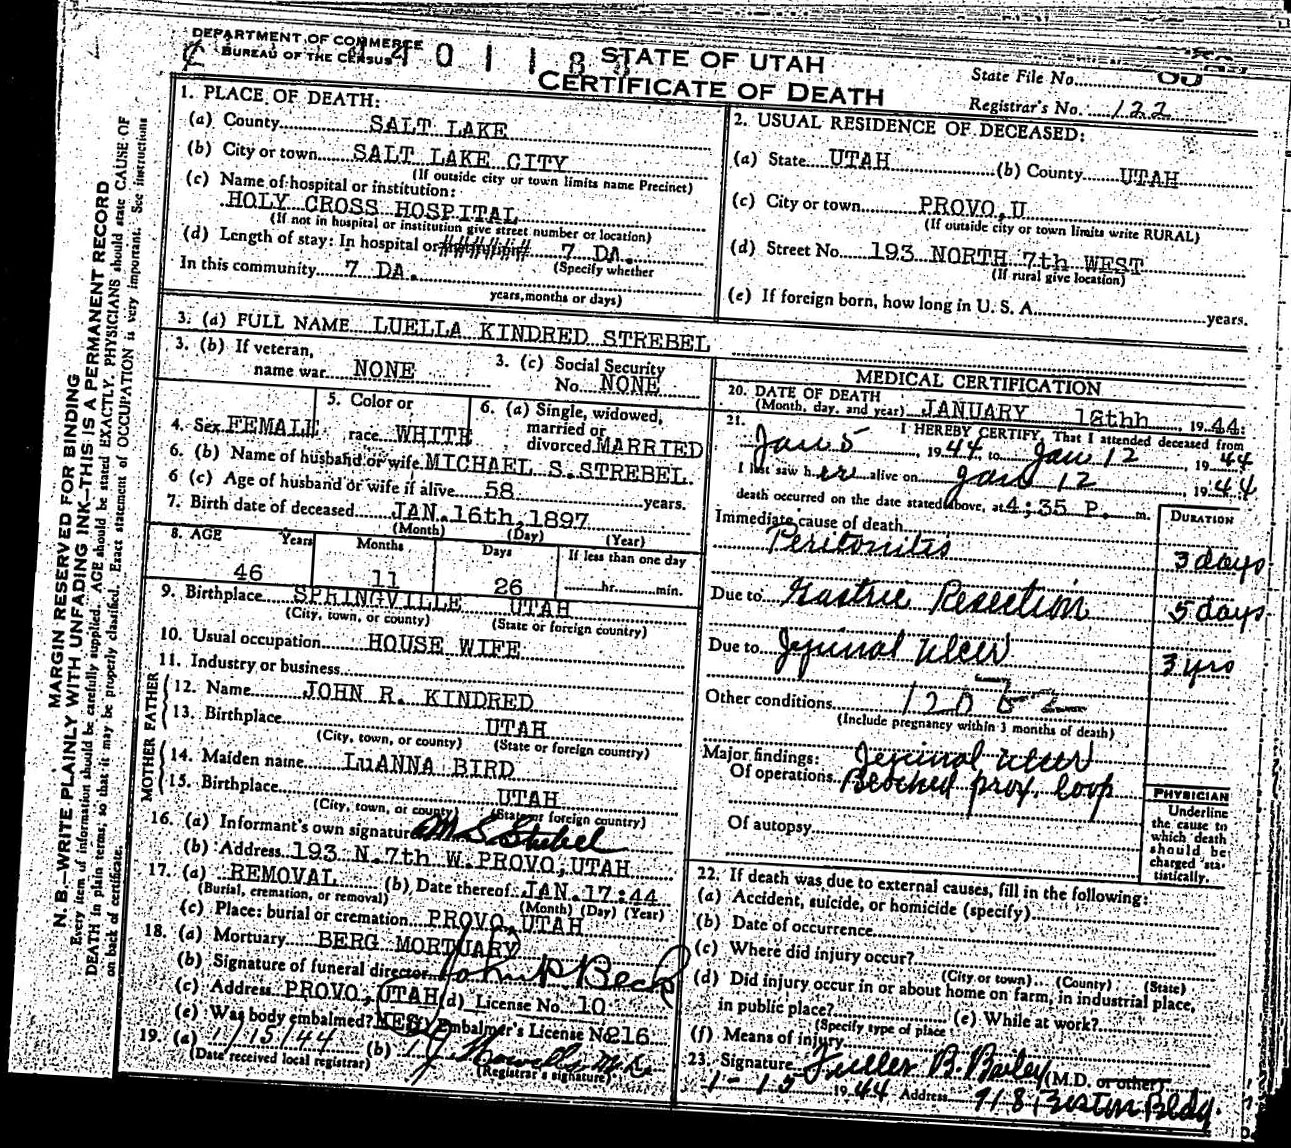 DEPARTMENT OF COMMERCE
BUREAU OF THE CENSUS
STATE OF UTAH
CERTIFICATE OF DEATH
State File No.
Registrar's No. 122
MARGIN RESERVED FOR BINDING
N. B.—WRITE PLAINLY WITH UNFADING INK—THIS IS A PERMANENT RECORD
Every item of information should be carefully supplied. AGE should be stated EXACTLY. PHYSICIANS should state CAUSE OF
DEATH in plain terms, so that it may be properly classified. Exact statement of OCCUPATION is very important. See instructions
on back of certificate.
1. PLACE OF DEATH:
(a) County SALT LAKE
(b) City or town SALT LAKE CITY
(If outside city or town limits name Precinct)
(c) Name of hospital or institution:
HOLY CROSS HOSPITAL
(If not in hospital or institution give street number or location)
(d) Length of stay: In hospital or ####### 7 DA.
(Specify whether
In this community 7 DA.
years, months or days)
2. USUAL RESIDENCE OF DECEASED:
(a) State UTAH (b) County UTAH
(c) City or town PROVO, U
(If outside city or town limits write RURAL)
(d) Street No. 193 NORTH 7th WEST
(If rural give location)
(e) If foreign born, how long in U. S. A. years.
3. (a) FULL NAME LUELLA KINDRED STREBEL
3. (b) If veteran,
name war NONE
3. (c) Social Security
No. NONE
4. Sex FEMALE
5. Color or
race WHITE
6. (a) Single, widowed,
married or
divorced MARRIED
6. (b) Name of husband or wife MICHAEL S. STREBEL.
6 (c) Age of husband or wife if alive 58 years.
7. Birth date of deceased JAN. 16th, 1897
(Month) (Day) (Year)
8. AGE Years Months Days If less than one day
46 11 26 hr. min.
9. Birthplace SPRINGVILLE UTAH
(City, town, or county) (State or foreign country)
10. Usual occupation HOUSE WIFE
11. Industry or business
FATHER
12. Name JOHN R. KINDRED
13. Birthplace UTAH
(City, town, or county) (State or foreign country)
MOTHER
14. Maiden name LuANNA BIRD
15. Birthplace UTAH
(City, town, or county) (State or foreign country)
16. (a) Informant's own signature M S Strebel
(b) Address 193 N. 7th W. PROVO, UTAH
17. (a) REMOVAL (b) Date thereof JAN. 17:44
(Burial, cremation, or removal) (Month) (Day) (Year)
(c) Place: burial or cremation PROVO, UTAH
18. (a) Mortuary BERG MORTUARY
(b) Signature of funeral director John P Beck
(c) Address PROVO, UTAH (d) License No. 10
(e) Was body embalmed? YES Embalmer's License No 216
19. (a) 1/15/44 (b)
(Date received local registrar) (Registrar's signature)
MEDICAL CERTIFICATION
20. DATE OF DEATH
(Month, day, and year) JANUARY 12thh, 1944:
21. I HEREBY CERTIFY, That I attended deceased from
Jan 5, 1944 to Jan 12, 1944
I last saw her alive on Jan 12, 1944
death occurred on the date stated above, at 4:35 P. m.
Immediate cause of death DURATION
Peritonitis 3 days
Due to Gastric Resection 5 days
Due to Jejunal Ulcer 3 yrs
Other conditions
(Include pregnancy within 3 months of death)
Major findings: Jejunal ulcer
Of operations Blocked prox. loop
Of autopsy
PHYSICIAN
Underline
the cause to
which death
should be
charged sta-
tistically.
22. If death was due to external causes, fill in the following:
(a) Accident, suicide, or homicide (specify)
(b) Date of occurrence
(c) Where did injury occur?
(City or town) (County) (State)
(d) Did injury occur in or about home on farm, in industrial place,
in public place? (e) While at work?
(Specify type of place
(f) Means of injury
23. Signature Fuller B. Bailey (M.D. or other)
1-15 1944 Address 718 Boston Bldg.